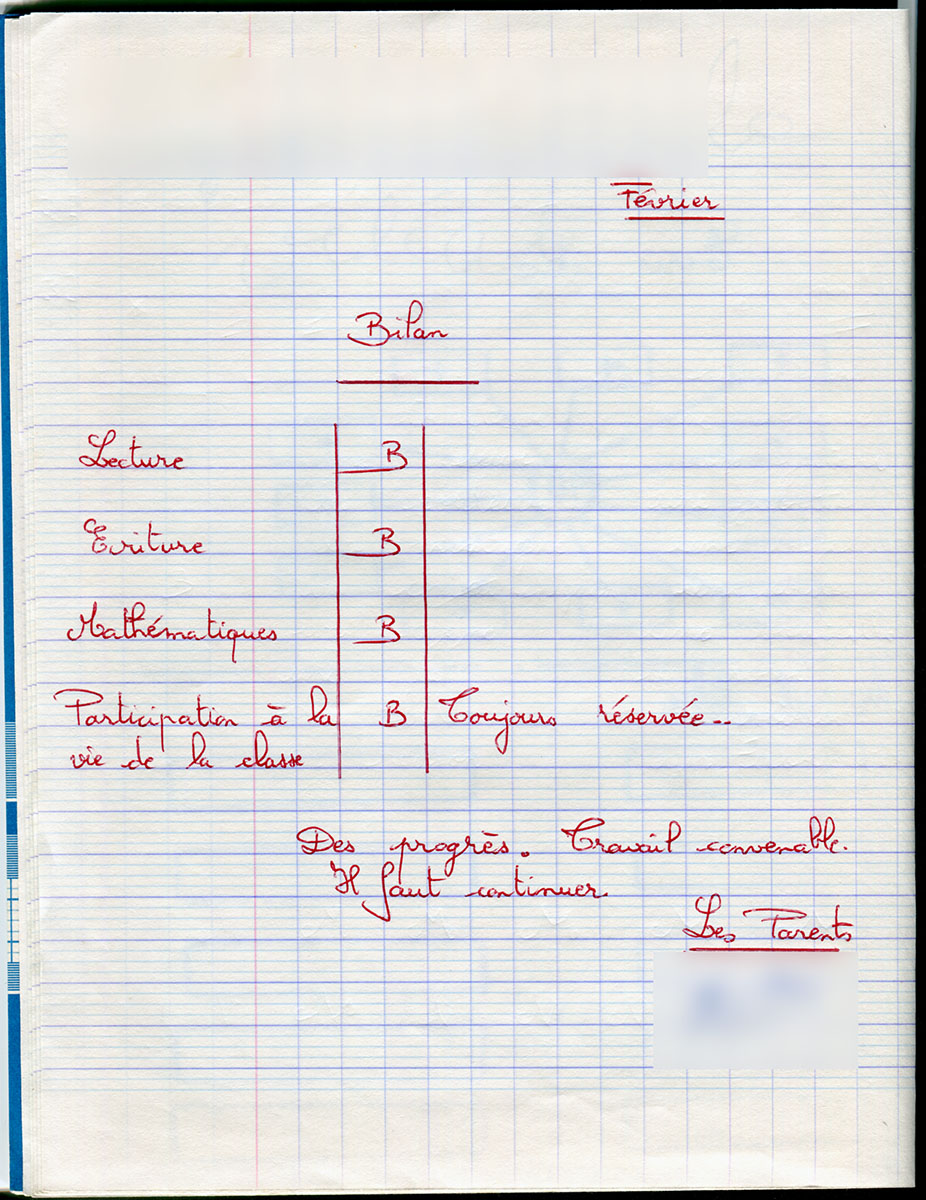 Février
Bilan
Lecture B
Ecriture B
Mathématiques B
Participation à la B Toujours réservée..
vie de la classe
Des progrès. Travail convenable.
Il faut continuer.
Les Parents